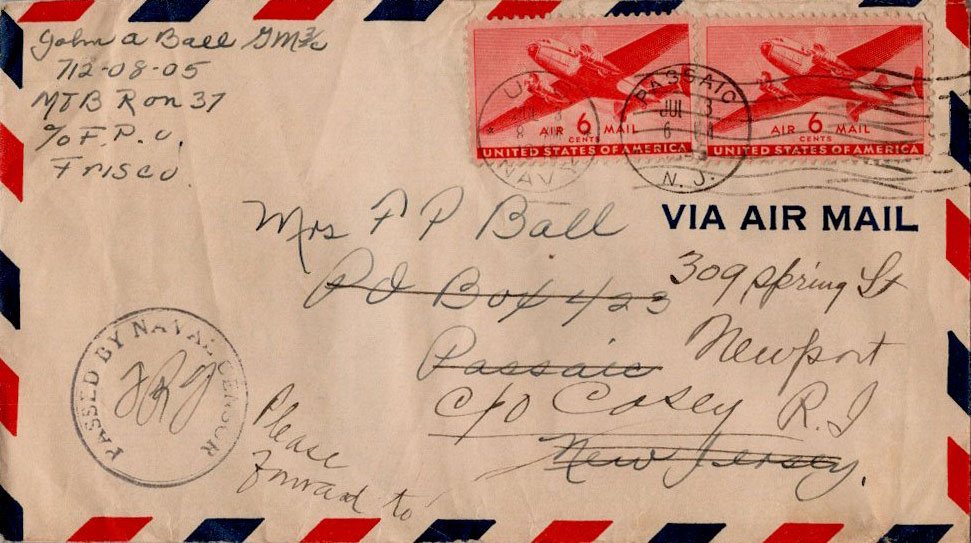 John A Ball GM3/c
712-08-05
MTB Ron 37
c/o F.P.O.
Frisco
AIR 6 MAIL
CENTS
UNITED STATES OF AMERICA
AIR 6 MAIL
CENTS
UNITED STATES OF AMERICA
NAVY
PASSAIC
JUL 3
N.J.
VIA AIR MAIL
Mrs F P Ball
PO Box 423
309 Spring St
Passaic
Newport
c/o Casey
R.I
New Jersey.
PASSED BY NAVAL CENSOR
Please
forward to